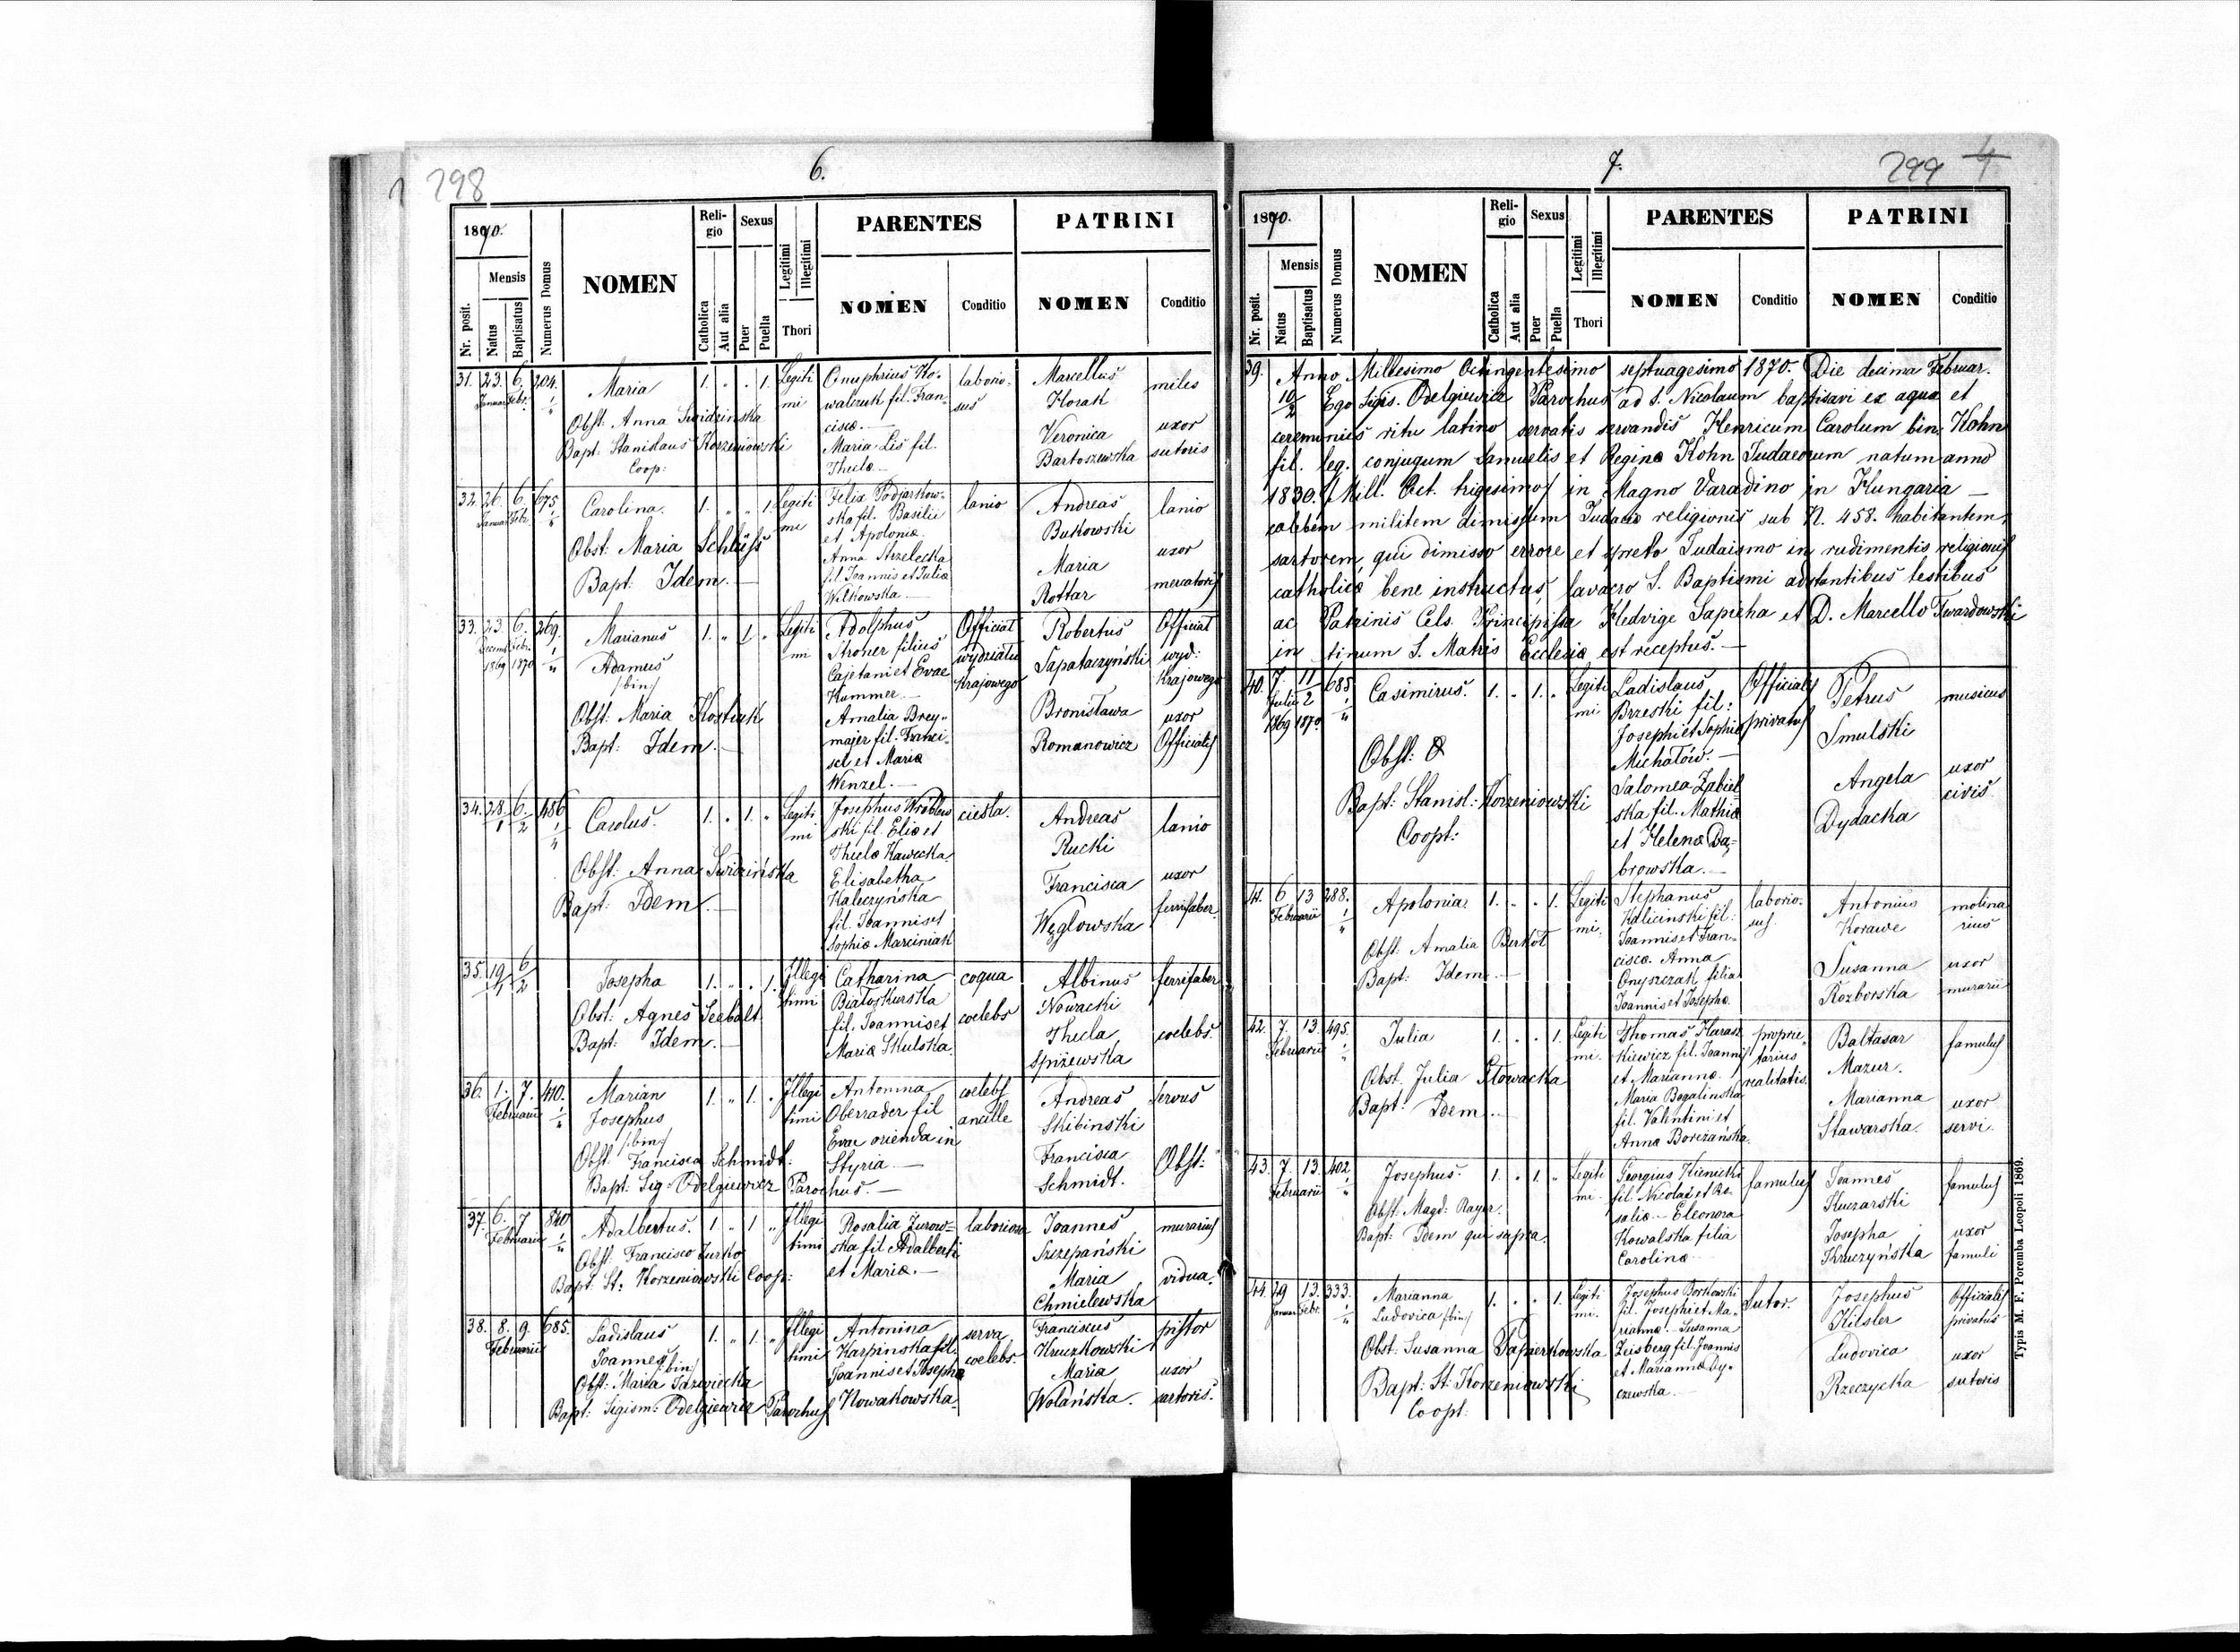 298
6.
1870.
Mensis
Nr. posit.
Natus
Baptisatus
Numerus Domus
NOMEN
Religio
Catholica
Aut alia
Sexus
Puer
Puella
Legitimi
Illegitimi
Thori
PARENTES
NOMEN
Conditio
PATRINI
NOMEN
Conditio
31. 23. 6. 204. Maria 1. " . 1. Legiti
Januar Febr.
mi
Obst: Anna Swidzinska
Bapt: Stanislaus Korzeniowski
Coop:
Onuphrius Ko-
walczuk fil. Fran-
ciscæ.—
Maria Lis fil.
Theclæ.—
laborio-
sus
Marcellus
Horak
Veronica
Bartoszewska
miles
uxor
sutoris
32. 26. 6. 675. Carolina. 1. " " 1 Legiti
Januar Febr.
mi
Obst: Maria Schlüss
Bapt: Idem.—
Felix Podjarkow-
ska fil. Basilii
et Apoloniæ.
Anna Strzelecka
fil. Joannis et Juliæ
Witkowska.—
lanio
Andreas
Bukowski
Maria
Rottar
lanio
uxor
mercatoris
33. 23. 6. 269. Marianus 1. " 1. " Legiti
Decemb. Febr.
1869 1870
mi
Adamus
/bin/
Obst: Maria Kostiak
Bapt: Idem.—
Adolphus
Stroner filius
Cajetani et Evae
Kummer.—
Amalia Brey-
majer fil. Franci-
sci et Mariæ
Wenzel.—
Officiał
wydziału
Krajowego
Robertus
Sapałaczyński
Bronisława
Romanowicz
Officiał
wyd:
Krajowego
uxor
Officialis
34. 28/1 6/2 486 Carolus. 1. . 1. " Legiti
mi
Obst: Anna Swidzińska
Bapt: Idem.—
Josephus Wróblew
ski fil. Eliæ et
Theclæ Kawecka.
Elisabetha
Kaleczyńska
fil. Joannis et
Sophiæ Marciniak
cieśla.
Andreas
Rucki
Francisca
Węglowska
lanio
uxor
ferrifaber.
35. 19/1 6/2 Josepha 1. " . 1. Illegi
timi
Obst: Agnes Seebalt
Bapt: Idem.—
Catharina
Białoskurska
fil. Joannis et
Mariæ Skulska.
coqua
coelebs
Albinus
Nowacki
Thecla
Spiżewska
ferrifaber
coelebs.
36. 1. 7. 410. Marian 1. " 1. . Illegi
Februarii
timi
Josephus
/bin/
Obst: Francisca Schmidt:
Bapt: Sig. Odelgiewicz Parochus.—
Antonina
Oberrader fil
Evae orienda in
Styria.—
coelebs
ancille
Andreas
Skibinski
Francisca
Schmidt.
Servus
Obst:
37. 6. 7 820 Adalbertus. 1 " 1 " Illegi
Februarii
timi
Obst: Francisco Zurko
Bapt: St. Korzeniowski Coop:
Rosalia Zurow-
ska fil Adalberti
et Mariæ.—
laboriosa
Joannes
Szczepański
Maria
Chmielewska
murarius
vidua.
38. 8. 9. 685. Ladislaus 1. " 1. " Illegi
Februarii
timi
Joannes /bin/
Obst: Maria Idzwiecka
Bapt: Sigism: Odelgiewicz Parochus
Antonina
Karpinska fil.
Joannis et Josephæ
Nowakowska.
serva
coelebs.
Franciscus
Kruczkowski
Maria
Wolańska.
pistor
uxor
sartoris.
7.
299
4
1870.
Mensis
Nr. posit.
Natus
Baptisatus
Numerus Domus
NOMEN
Religio
Catholica
Aut alia
Sexus
Puer
Puella
Legitimi
Illegitimi
Thori
PARENTES
NOMEN
Conditio
PATRINI
NOMEN
Conditio
39. Anno Millesimo Octingentesimo septuagesimo 1870. Die decima Februar.
10/2 Ego Sigis. Odelgiewicz Parochus ad S. Nicolaum baptisavi ex aqua et
ceremoniis ritu latino servatis servandis Henricum Carolum bin: Kohn
fil. leg. conjugum Samuelis et Reginæ Kohn Judaeorum natum anno
1830. /Mill. Oct. trigesimo/ in Magno Varadino in Hungaria —
coelibem militem dimissum Judaeæ religionis sub N. 458. habitantem,
sartorem, qui dimisso errore et spreto Judaismo in rudimentis religionis
catholicæ bene instructus, lavacro S. Baptismi adstantibus testibus
ac Patrinis Cels. Principissa Hedvige Sapieha et D. Marcello Twardowski
in sinum S. Matris Ecclesiæ est receptus.—
40. 7. 11 685 Casimirus. 1. " 1. " Legiti
Julii 2
1869 1870
mi
Obst: O
Bapt: Stanisl: Korzeniowski
Coopt:
Ladislaus
Brzeski fil:
Josephi et Sophiæ
Michałów.—
Salomea Zabiel
ska fil. Mathiæ
et Helenæ Dą-
browska.—
Officialis
privatus
Petrus
Smulski
Angela
Dydacka
musicus
uxor
civis
41. 6 13 288. Apolonia 1. " . 1. Legiti
Februarii
mi.
Obst: Amalia Berkot
Bapt: Idem.—
Stephanus
Kalicinski fil:
Joannis et Fran-
ciscæ. Anna
Onyszczak filia
Joannis et Josephæ
laborio-
sus.
Antonius
Korawe
Susanna
Rozborska
molina
rius
uxor
murarii
42. 7. 13. 495. Julia 1. . . 1. Legiti
Februarii
mi.
Obst. Julia Słowacka
Bapt: Idem.—
Thomas Harasz
kiewicz fil. Joannis
et Mariannæ.
Maria Bogalinska
fil. Valentini et
Annæ Borczańska.
proprie-
tarius
realitatis.
Baltasar
Mazur.
Marianna
Stawarska.
famulus
uxor
servi.
43. 7. 13. 402 Josephus. 1. " 1. " Legiti
Februarii
mi.
Obst: Magd: Rayer.
Bapt: Idem qui supra.
Georgius Klenicki
fil. Nicolai et Ro-
saliæ.— Eleonora
Kowalska filia
Carolinæ
famulus
Joannes
Kuczarski
Josepha
Kruczyńska
famulus
uxor
famuli
44. 29 13. 333. Marianna 1. . . 1. Legiti
Januar Febr.
mi.
Ludovica /bin/
Obst: Susanna Papierkowska
Bapt: St. Korzeniowski
Coopt:
Josephus Borkowski
fil. Josephi et Ma-
riannæ.— Susanna
Zeisberg fil. Joannis
et Mariannæ Dy-
czewska.—
Sutor.
Josephus
Kitsler
Ludovica
Rzeczycka
Officialis
privatus
uxor
sutoris
Typis M. F. Poremba Leopoli 1869.